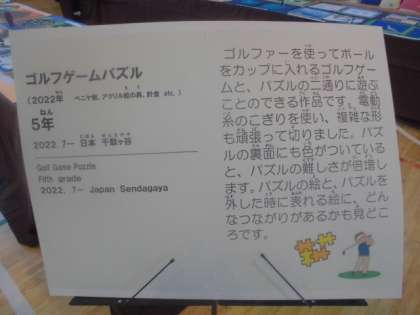 ゴルフゲームパズル
(2022年 ベニヤ板、アクリル絵の具、針金 etc.)
5年
2022. 7~ 日本 千駄ヶ谷
Golf Game Puzzle
Fifth grade
2022. 7~ Japan Sendagaya
ゴルファーを使ってボール
をカップに入れるゴルフゲー
ムと、パズルの二通りに遊ぶ
ことのできる作品です。電動
糸のこぎりを使い、複雑な形
も頑張って切りました。パズ
ルの裏面にも色がついている
と、パズルの難しさが倍増し
ます。パズルの絵と、パズルを
外した時に表れる絵に、どん
なつながりがあるかも見どこ
ろです。